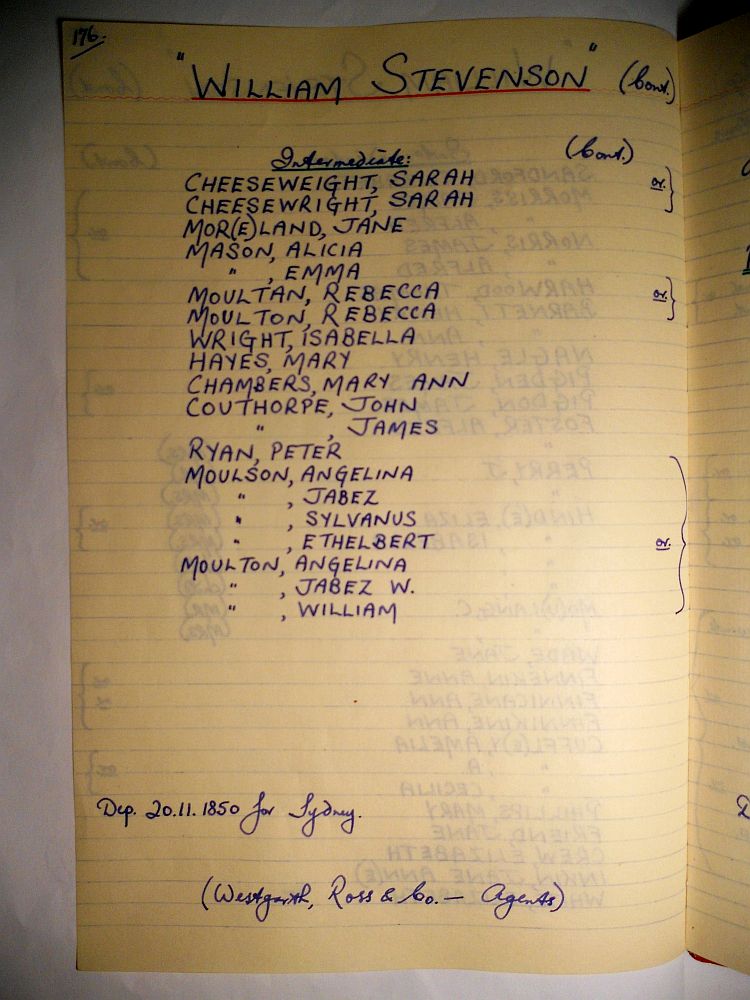 176.
"WILLIAM STEVENSON" (Cont.)
Intermediate: (Cont.)
CHEESEWEIGHT, SARAH or.
CHEESEWRIGHT, SARAH
MOR(E)LAND, JANE
MASON, ALICIA
" , EMMA
MOULTAN, REBECCA or.
MOULTON, REBECCA
WRIGHT, ISABELLA
HAYES, MARY
CHAMBERS, MARY ANN
COUTHORPE, JOHN
" , JAMES
RYAN, PETER
MOULSON, ANGELINA
" , JABEZ
" , SYLVANUS
" , ETHELBERT or.
MOULTON, ANGELINA
" , JABEZ W.
" , WILLIAM
Dep. 20.11.1850 for Sydney.
(Westgarth, Ross & Co. — Agents)